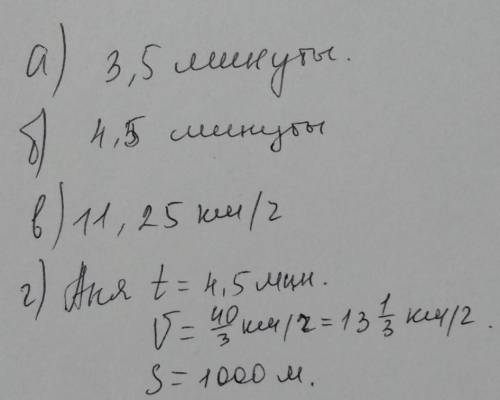 а) 3,5 минуты.
б) 4,5 минуты
в) 11,25 км/ч
г) Аня t = 4,5 мин.
V = 40/3 км/ч = 13 1/3 км/ч.
S = 1000 м.